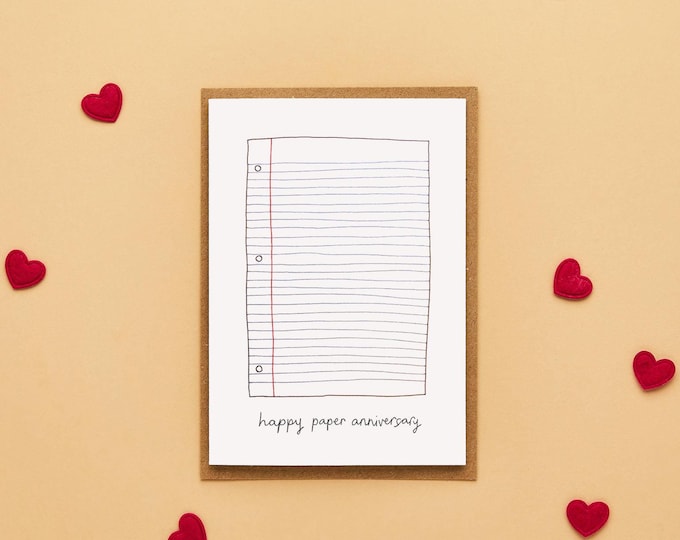 happy paper anniversary